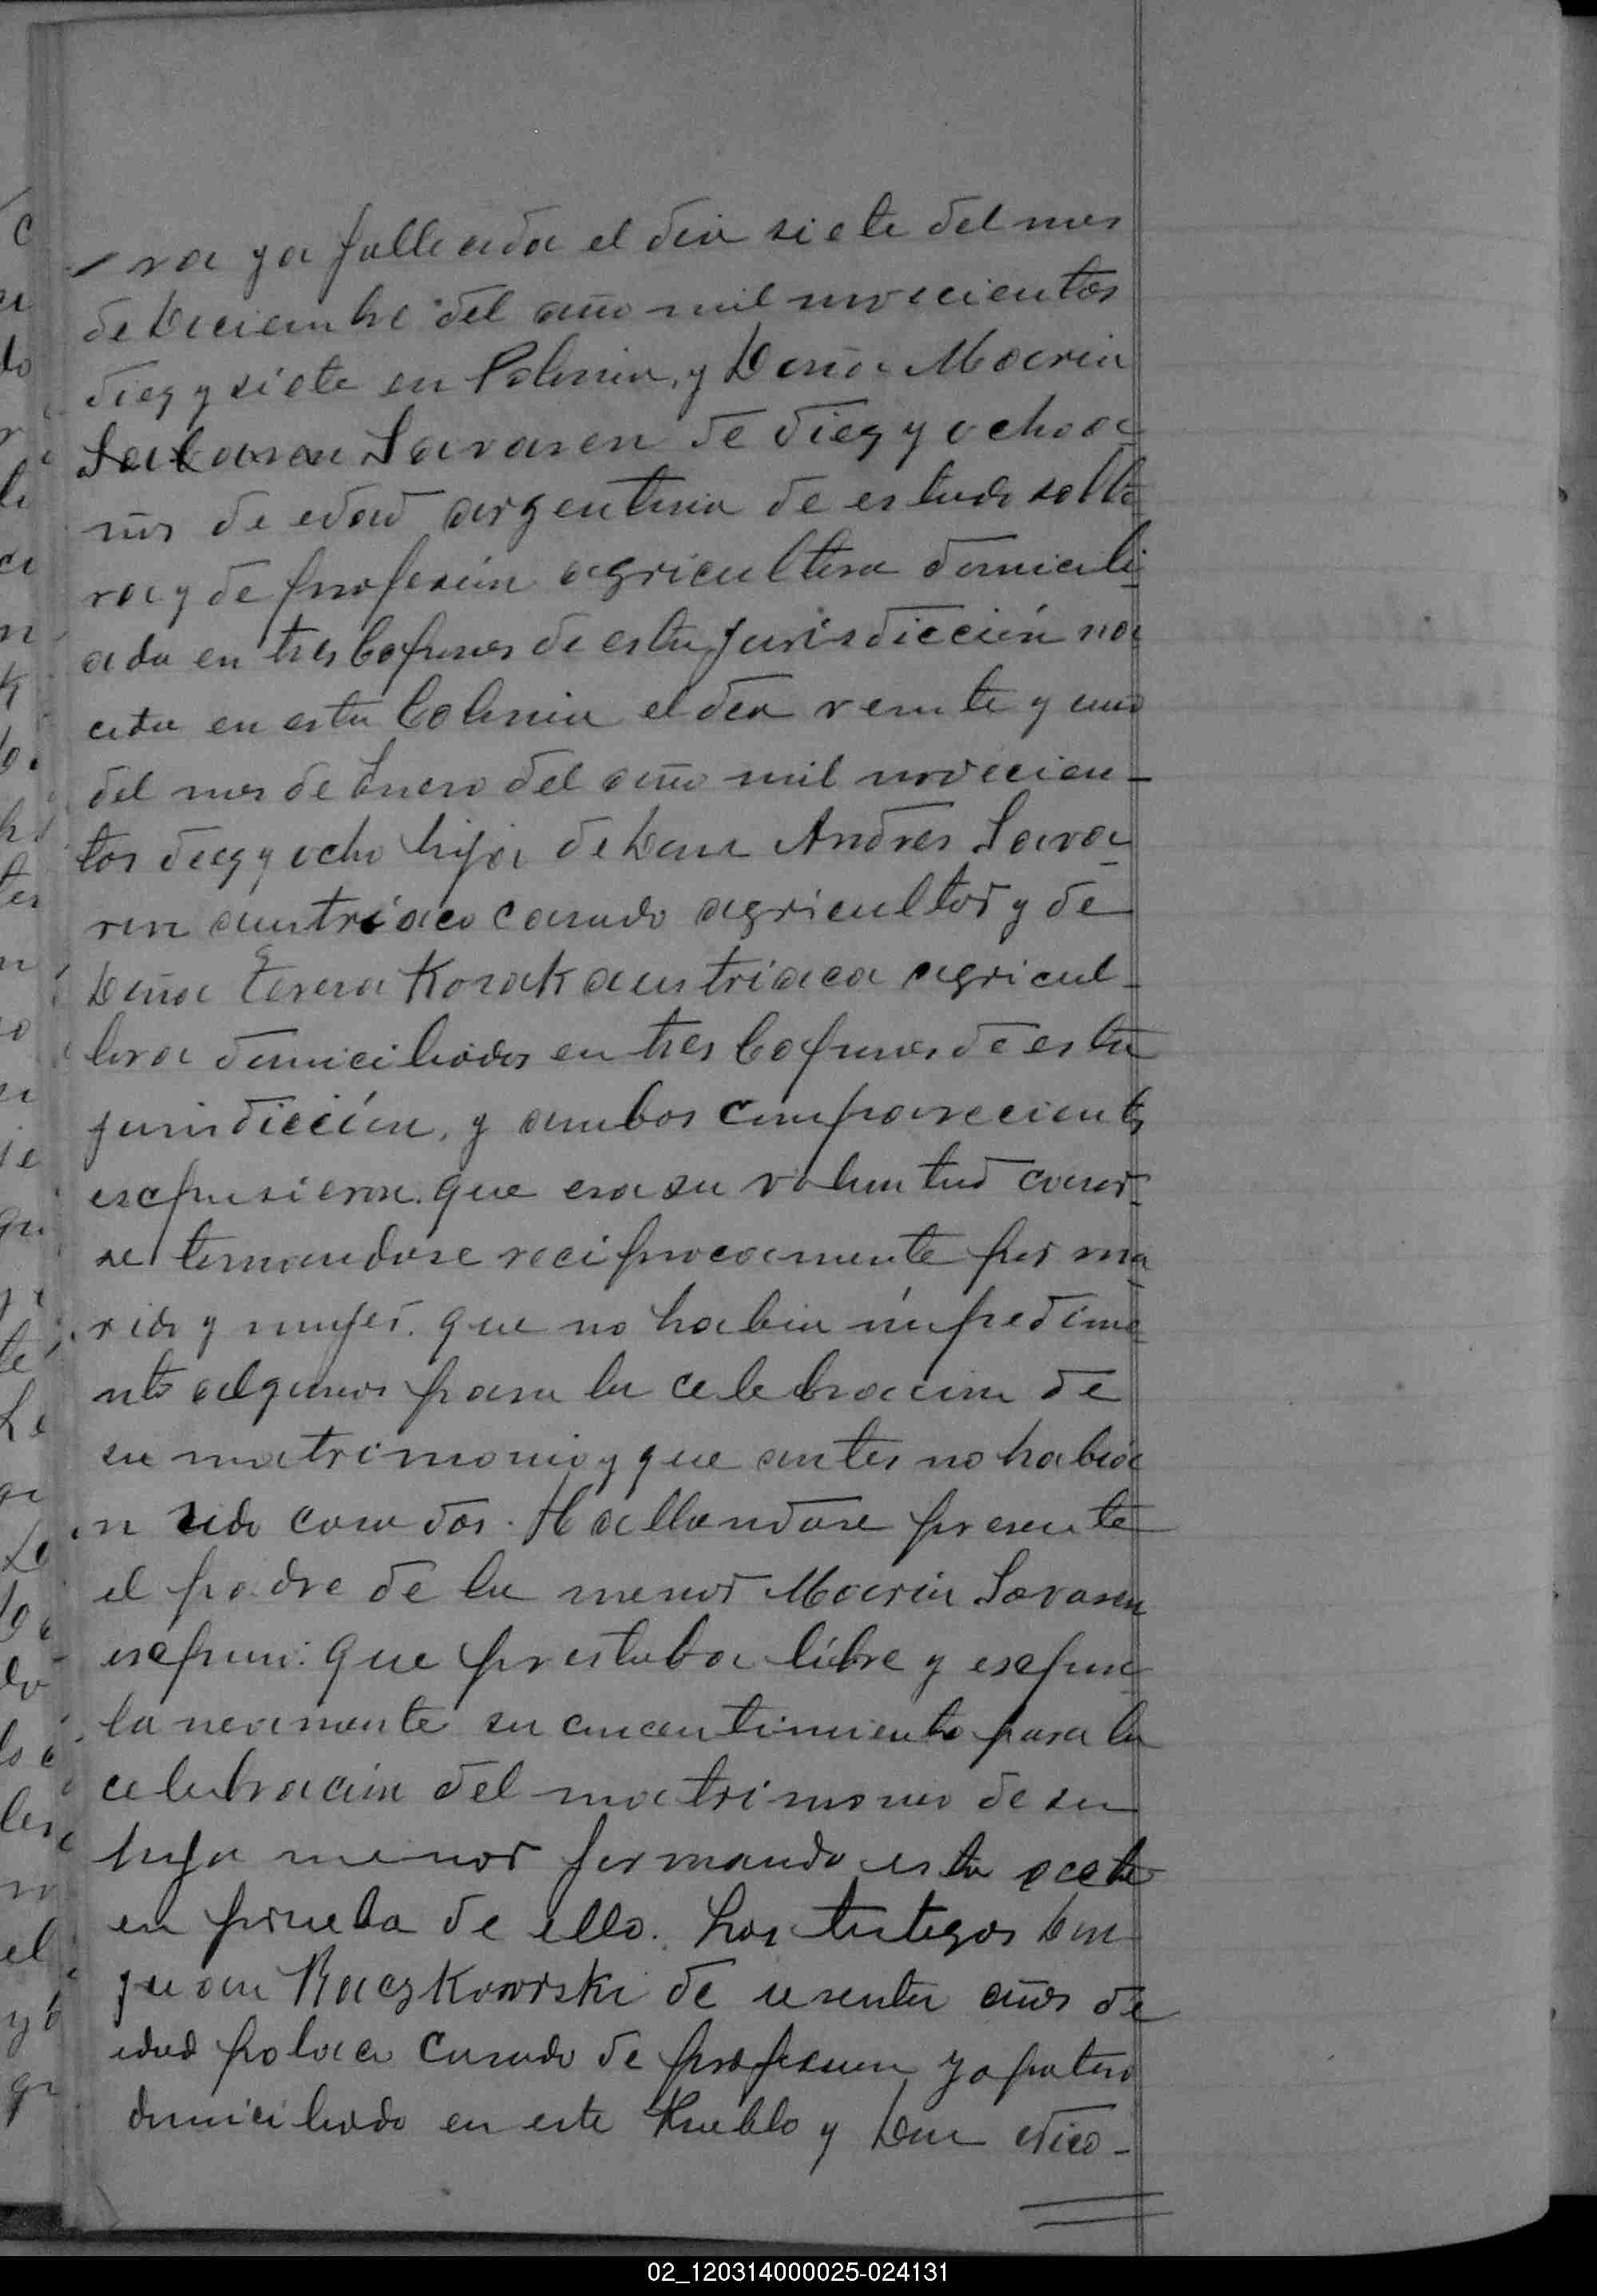 ra ya falleada el dia siete del mes
de Deciembre del año mil novecientos
diez y siete en Polonia, y Doña Maria
Sabaren Savaren de diez y ocho a-
ños de edad argentina de estado solte
ra y de profesión agricultora domicili-
ada en tres Capones de esta jurisdicción na
cida en esta Colonia el dia veinte y uno
del mes de Enero del año mil novecien-
tos diez y ocho hija de Don Andres Sava-
ren austriaco casado agricultor y de
Doña Teresa Kozak austriaca agricul-
tora domiciliados en tres Capones de esta
jurisdicción, y ambos comparecientes
escpusieron. que era su voluntad casar-
se tomandose reciprocamente por ma-
rido y mujer. que no habia impedime-
nto algunos para la celebracion de
su matrimonio y que antes no habia
n sido casados. Hallandose presente
el padre de la menor Maria Savaren
escpuso: que prestaba libre y escpon-
taneamente su consentimiento para la
celebración del matrimonio de su
hija menor formando esta acta
en prueba de ello. Los testigos Don
Juan Raczkowski de sesenta años de
edad polaco casado de profesion zapatero
domiciliado en este Pueblo y Don Nico-
02_120314000025-024131